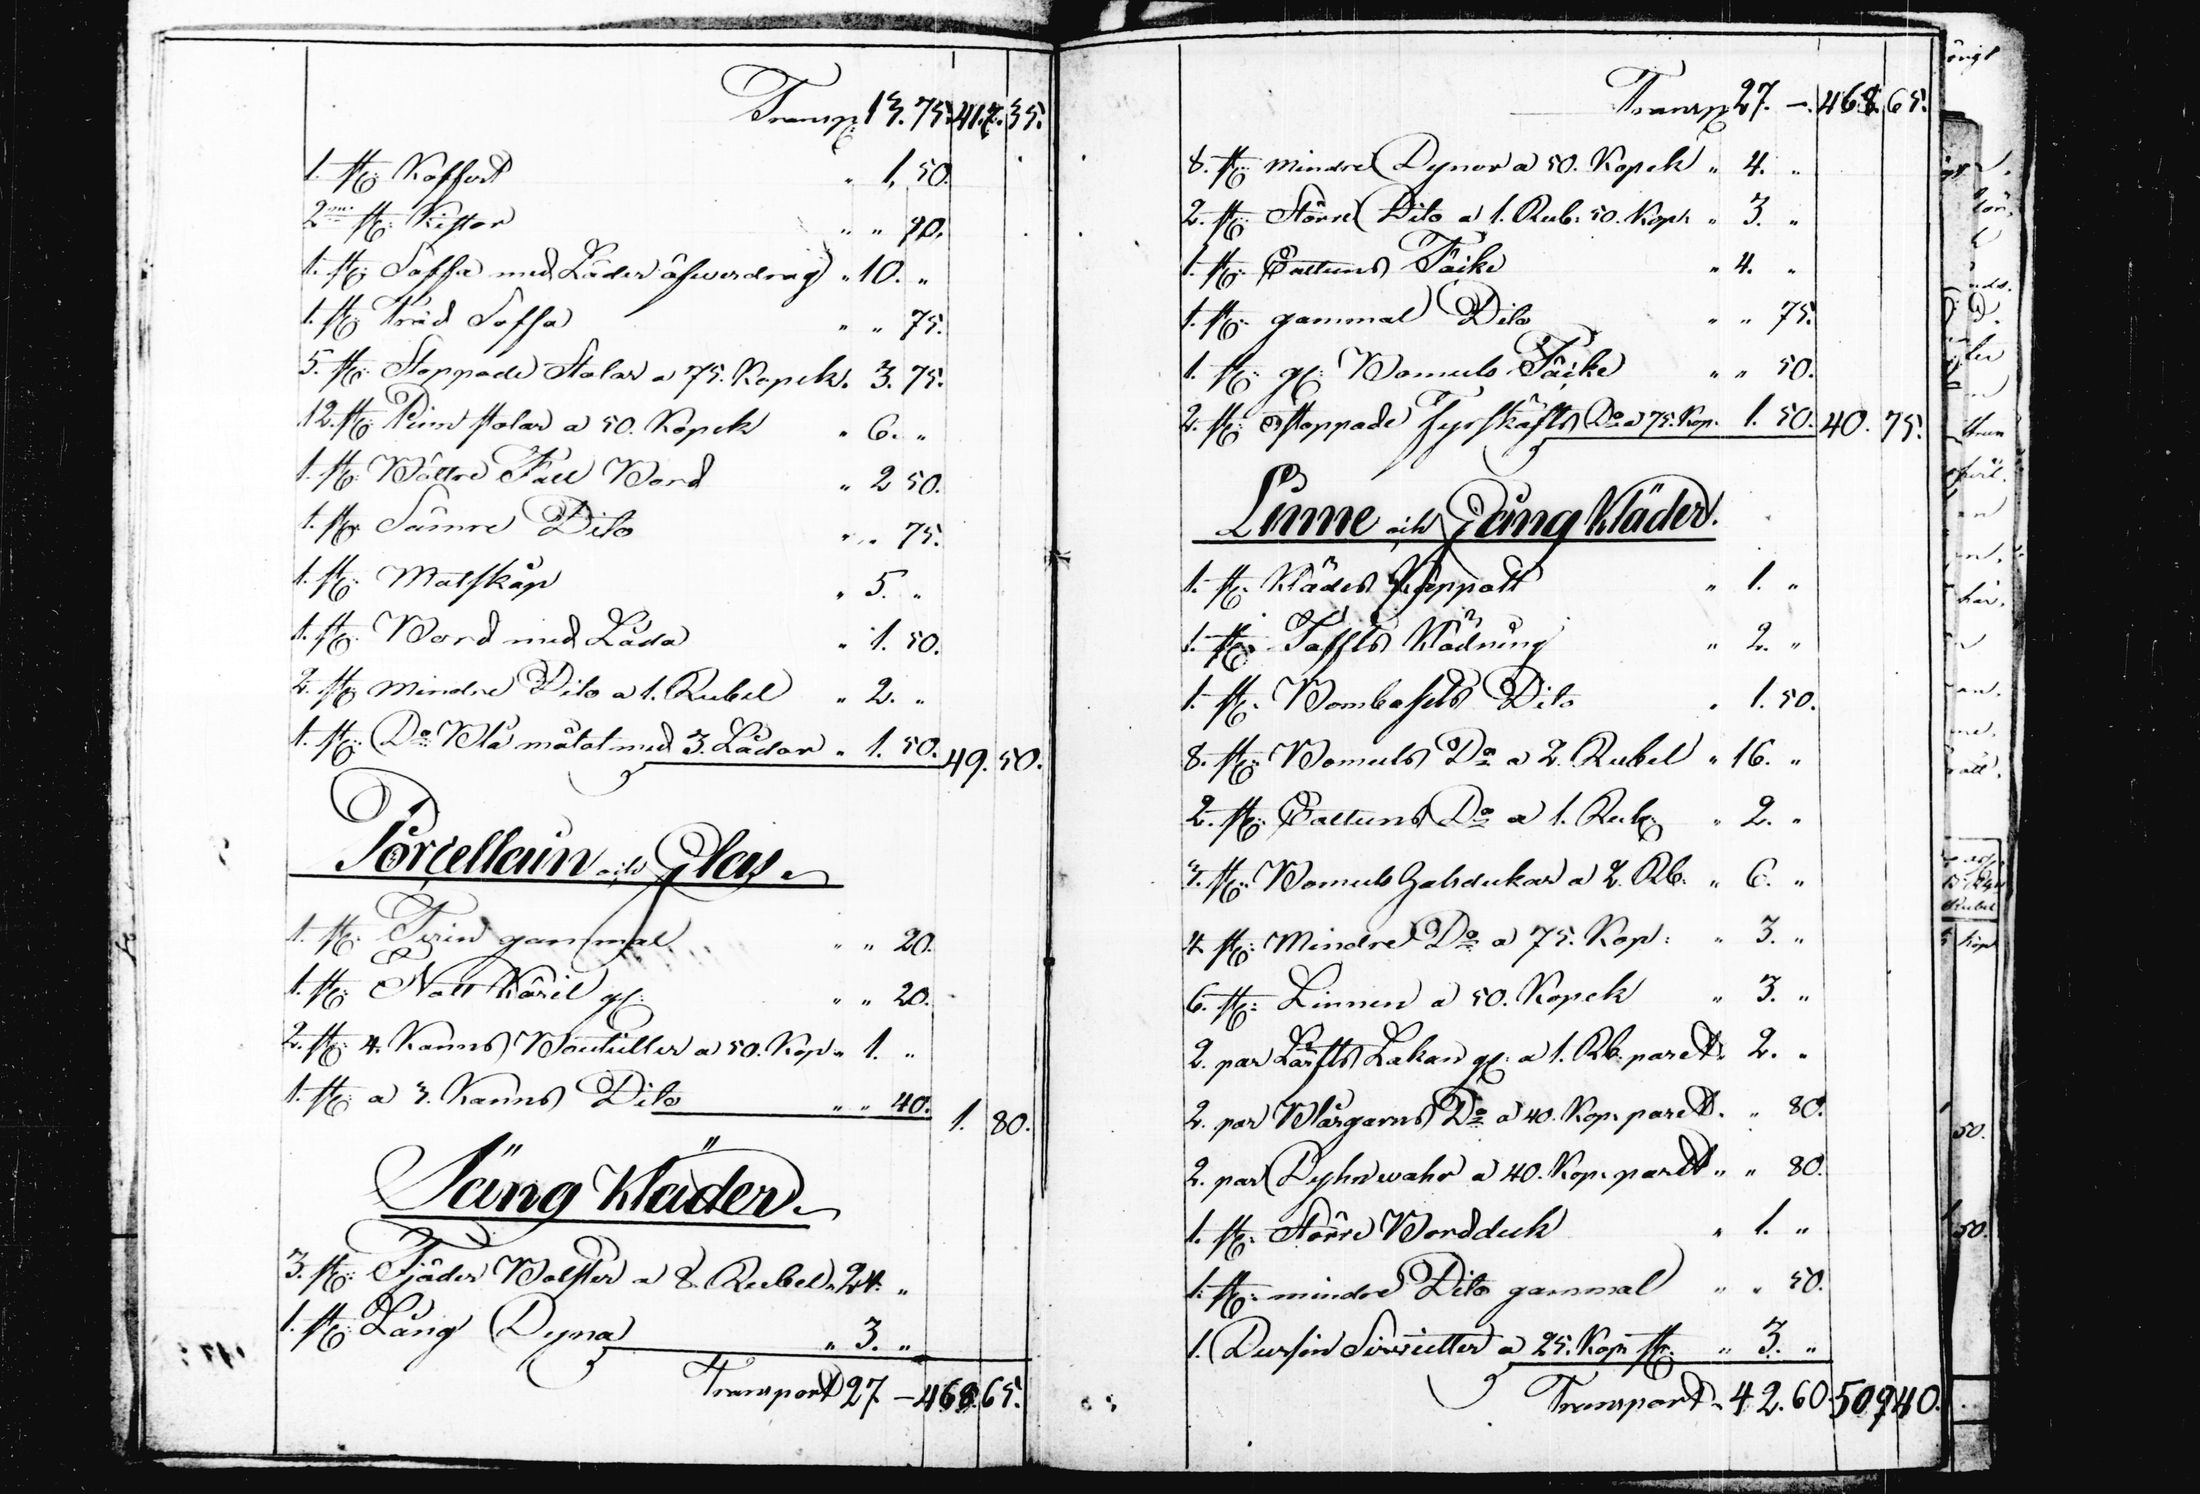 Transp: 13. 75. 417. 35.
1. st: Koffert " 1. 50.
2ne st: Kistor " " 90.
1. st: Soffa med Läder öfwerdrag " 10. "
1. st: Träd Soffa " " 75.
5. st: Stoppade Stolar a 75. Kopek. 3. 75.
12. st: Pinn stolar a 50. Kopek " 6. "
1. st: Bättre Fäll Bord " 2 50.
1. st: Sämre Dito " " 75.
1. st: Matskåp " 5. "
1. st: Bord med Låda " 1. 50.
2. st: mindre Dito a 1. Rubel " 2. "
1. st: Do Blå målat med 3. Lådor " 1. 50. 49. 50.
Porcellain och Glas.
1. st: Terin gammal " " 20.
1. st: Natt Käril gl: " " 20.
2. st: 4. Kanns Bouteiller a 50. Kop " 1. "
1. st: a 3. Kanns Dito " " 40. 1. 80.
Säng Kläder.
3. st: Fjäder Bolster a 8. Rubel " 24. "
1. st: Lång Dyna " 3. "
Transport 27. — 468. 65.
Transp 27. —. 468. 65.
8. st: mindre Dynor a 50. Kopek " 4. "
2. st: Större Dito a 1. Rub: 50. Kop: " 3. "
1. st: Cattuns Täcke " 4. "
1. st: gammal Dito " " 75.
1. st: gl: Bomuls Täcke " " 50.
2. st: Stoppade fyrskäfts Do a 75. Kop. 1. 50. 40. 75.
Linne och Gång Kläder.
1. st: Klädes Kappott " 1. "
1. st: Taffts Klädning " 2. "
1. st: Bombasets Dito " 1. 50.
8. st: Bomuls Do a 2. Rubel " 16. "
2. st: Cattuns Do a 1. Rub: " 2. "
3. st: Bomuls Halsdukar a 2. Rb. " 6. "
4. st: Mindre Do a 75. Kop: " 3. "
6. st: Linnen a 50. Kopek " 3. "
2. par Lärfts Lakan gl: a 1. Rb. paret " 2. "
2. par Blårgarns Do a 40. Kop. paret. " 80.
2. par Dyhnwahr a 40. Kop. paret " " 80.
1. st: Större Bordduk " 1. "
1. st: mindre Dito gammal " " 50.
1. Dussin Servietter a 25. Kop st: " 3. "
Transport. 42. 60. 509. 40.